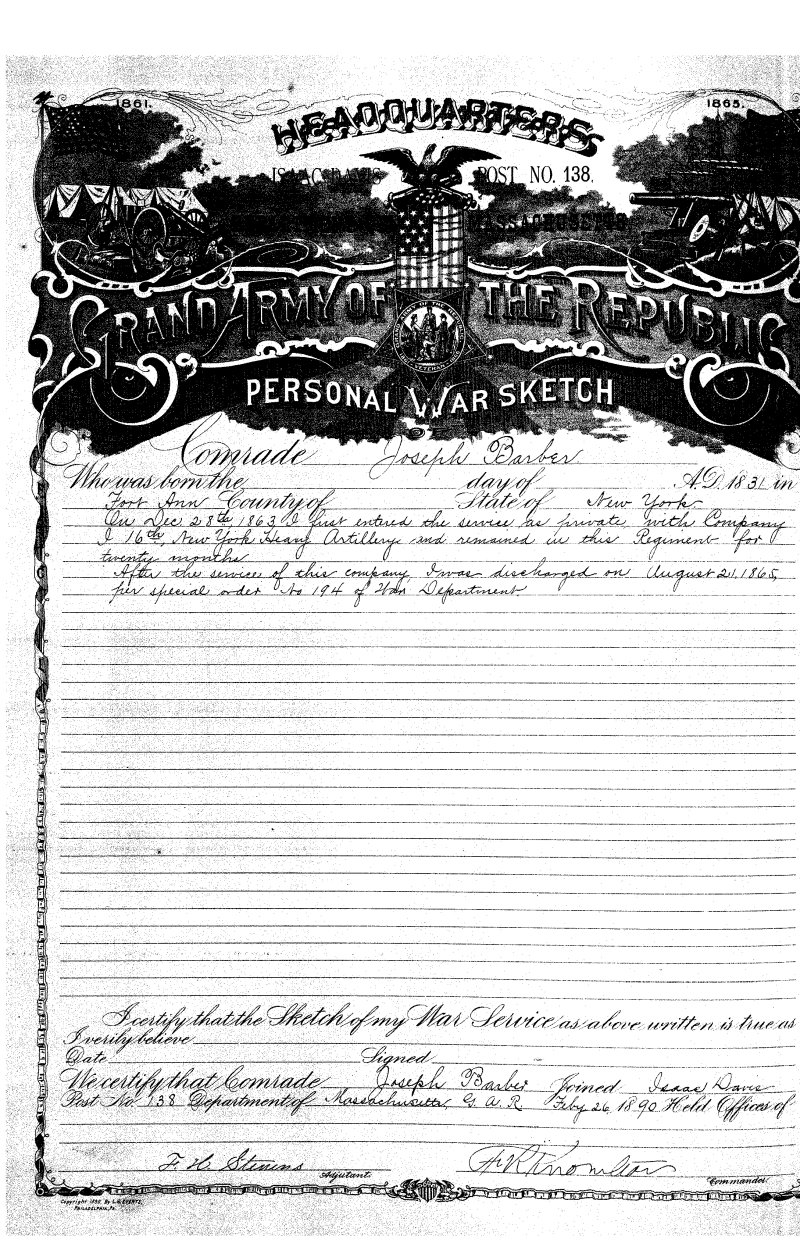 1861.
1865.
HEADQUARTERS
ISAAC DAVIS POST NO. 138.
MASSACHUSETTS
GRAND ARMY OF THE REPUBLIC
PERSONAL WAR SKETCH
OF
Comrade Joseph Barber
Who was born the day of A.D. 1831 in
Fort Ann County of State of New York
On Dec 28th 1863 I first entered the service as private with Company
I 16th New York Heavy Artillery and remained in this Regiment for
twenty months
After the service of this company, I was discharged on August 21, 1865,
per special order No 194 of War Department.
I certify that the Sketch of my War Service as above written is true as
I verily believe
Date Signed
We certify that Comrade Joseph Barber Joined Isaac Davis
Post No. 138 Department of Massachusetts, G. A. R. Feby 26, 1890 Held Offices of
F. H. Stevens
Adjutant.
Commander.
Copyright 1890 By L.H. EVERTS,
PHILADELPHIA, PA.